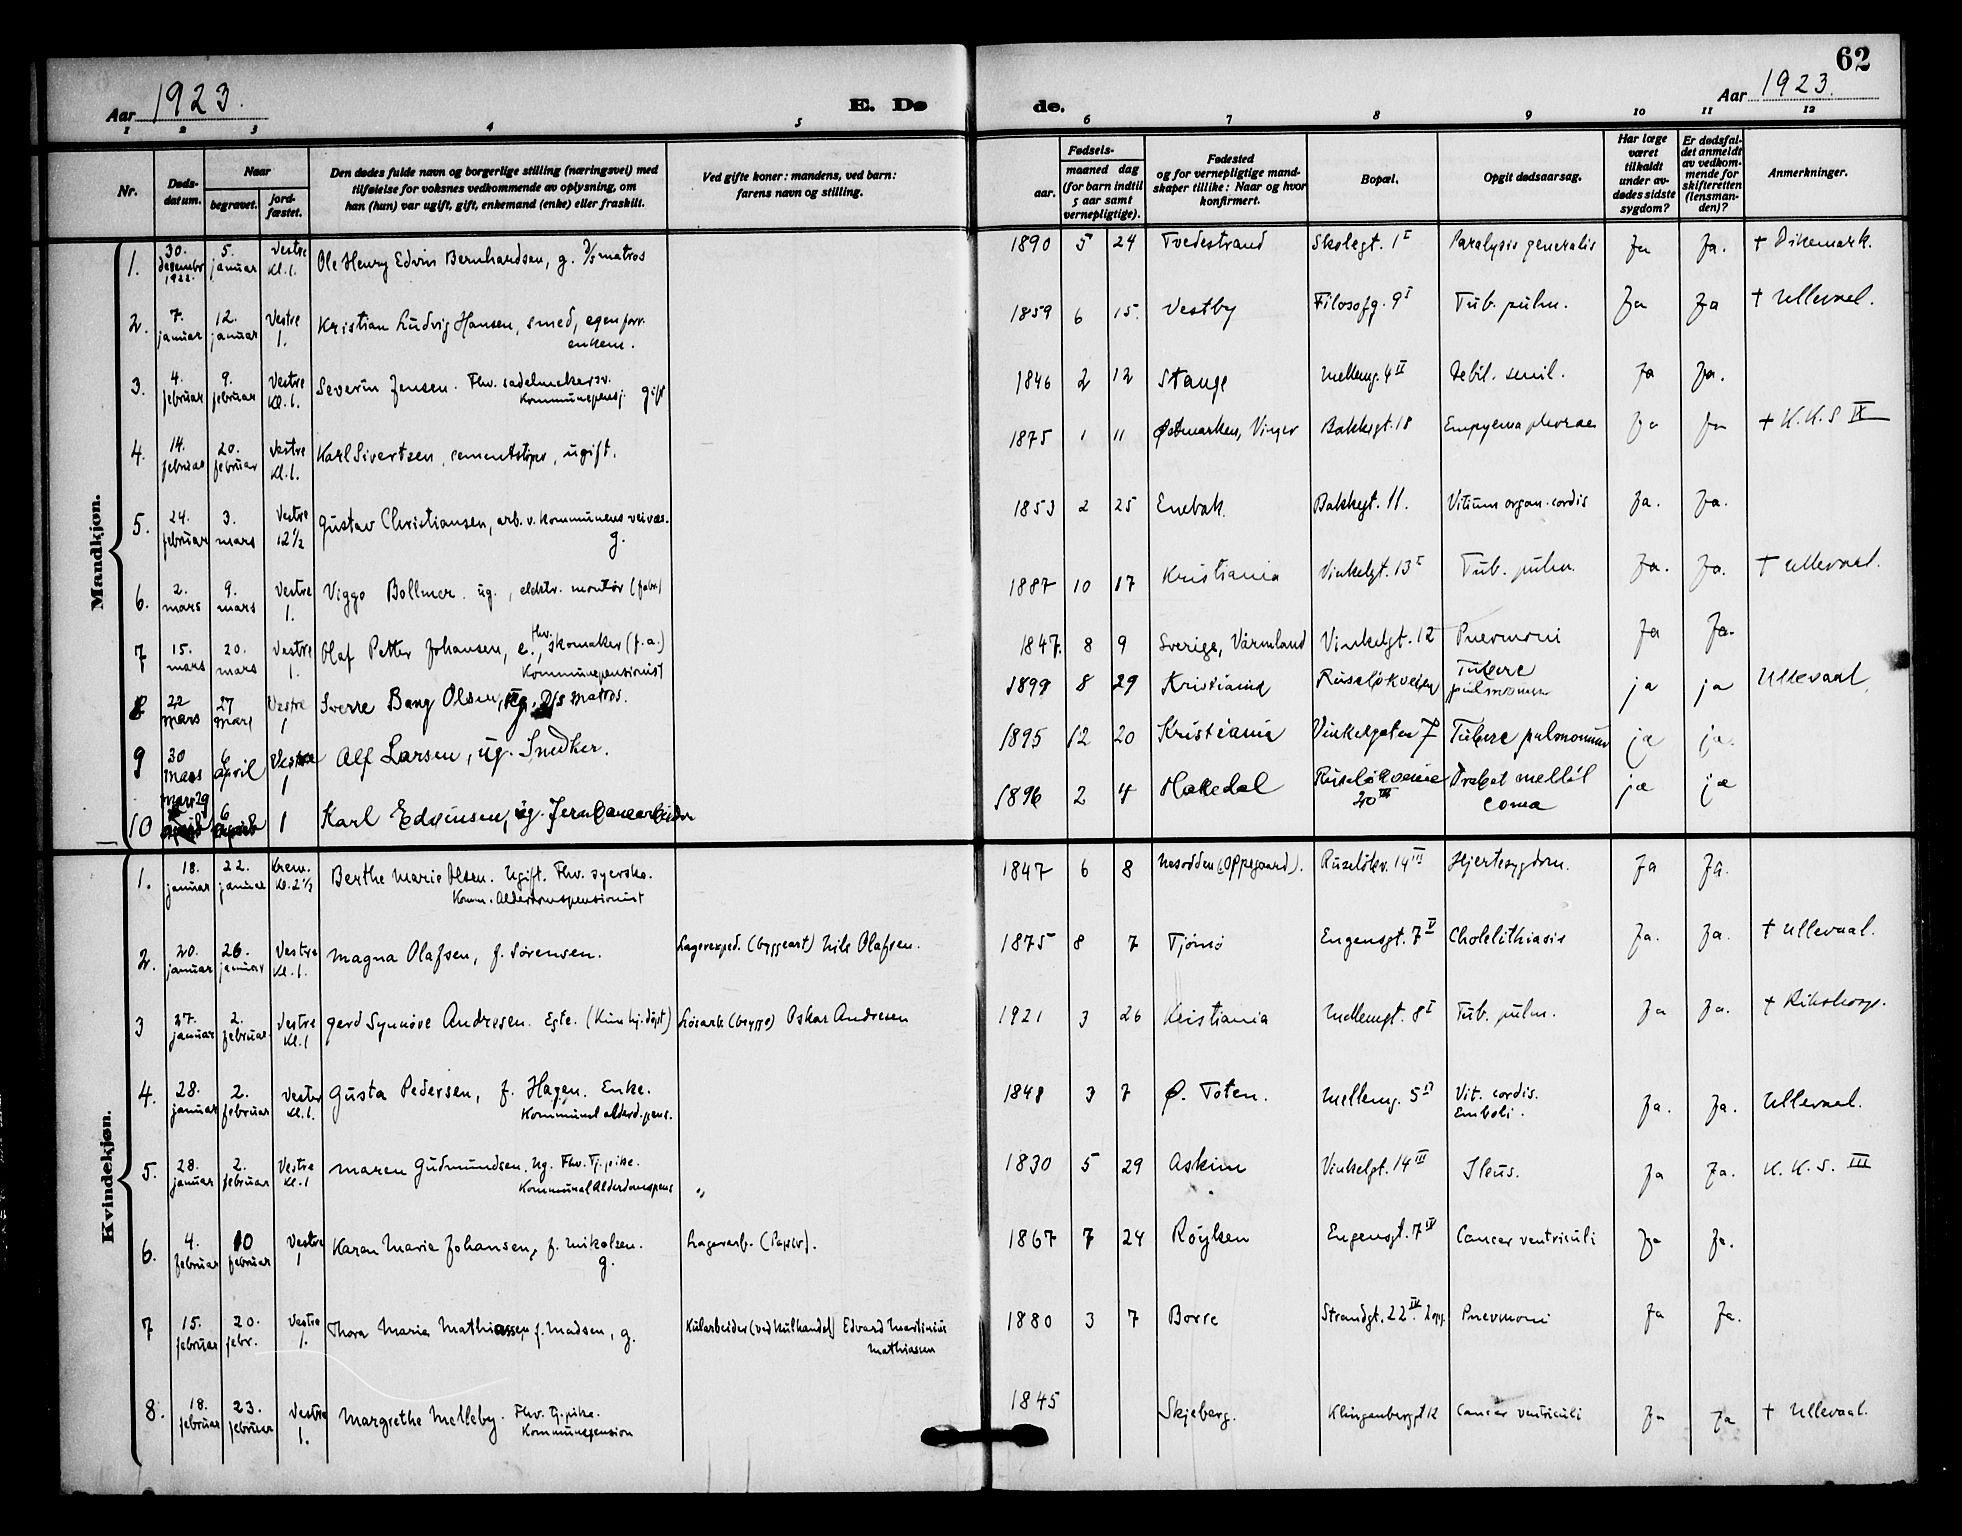 62
Aar 1923.
E. Dø
de.
Aar 1923.
1 2 3 4 5 6 7 8 9 10 11 12
Nr.
Døds-
datum.
Naar
begravet.
jord-
fæstet.
Den dødes fulde navn og borgerlige stilling (næringsvei) med
tilføielse for voksnes vedkommende av oplysning, om
han (hun) var ugift, gift, enkemand (enke) eller fraskilt.
Ved gifte koner: mandens, ved barn:
farens navn og stilling.
Fødsels-
aar.
maaned dag
(for barn indtil
5 aar samt
vernepligtige).
Fødested
og for vernepligtige mand-
skaper tillike: Naar og hvor
konfirmert.
Bopæl.
Opgit dødsaarsag.
Har læge
været
tilkaldt
under av-
dødes sidste
sygdom?
Er dødsfal-
det anmeldt
av vedkom-
mende for
skifteretten
(lensman-
den)?
Anmerkninger.
Mandkjøn.
1. 30. desembr 1922. 5. januar Vestre Kl. 1. Ole Henry Edvin Bernhardsen, g. matros 1890 5 24 Tvedestrand Skolegt. 1 I Paralysis generalis Ja Ja. + Dikemark.
2. 7. januar 12. januar Vestre 1. Kristian Ludvig Hansen, smed, egen forr. enkem. 1859 6 15. Vestby Filosofg. 9 I Tub. pulm. Ja Ja + Ullevaal.
3. 4. februar 9. februar Vestre Kl. 1. Severin Jensen. Fhv. sadelmakersv. Kommunepensj. gift 1846 2 12 Stange Mellemg. 4 II Debil. senil. Ja Ja.
4. 14. februar 20. februar Vestre Kl. 1. Karl Sivertsen, cementstøper, ugift. 1875 1 11 Østmarken, Vinger Bakkegt. 18 Empyema pleurae Ja Ja + K.K.S IX
5. 24. februar 3. mars Vestre 12 1/2 Gustav Christiansen, arb. v. kommunens veivæs. g. 1853 2 25 Enebak Bakkegt. 11. Vitium organ. cordis Ja. Ja.
6. 2. mars 9. mars Vestre 1. Viggo Bollmer. ug., elektr. montør (fabr) 1887 10 17 Kristiania Vinkelgt. 13 I Tub. pulm. Ja. Ja. + Ullevaal.
7 15. mars 20. mars Vestre 1. Olaf Petter Johansen, e., fhv. skomaker (f.a.) Kommunepensionist 1847. 8 9 Sverige, Värmland Vinkelgt. 12 Pneumoni Ja Ja.
8 22 mars 27 mars Vestre 1 Sverre Bang Olsen, ug. D/S matros. 1899 8 29 Kristiania Ruseløkveien Tuberc pulmonum ja ja Ullevaal
9 30 mars 6 april Vestre 1 Alf Larsen, ug. Snedker. 1895 12 20 Kristiania Vinkelgaten 7 Tuberc pulmonum ja ja.
10 mars 29 6 april 1 Karl Edvinsen, ug. Jernbanearbeider 1896 2 4 Hakedal Ruseløkveien 20 III Diabet mellit coma ja ja
Kvindekjøn.
1. 18. januar 22. januar Krem. Kl. 2 1/2 Berthe Marie Olsen. Ugift. Fhv. syerske. Komm. Alderdomspensionist 1847 6 8 Nesodden (Oppegaard). Ruseløkv. 14 III Hjertesygdom. Ja Ja.
2. 20. januar 26. januar Vestre Kl. 1. Magna Olafsen, f. Sørensen. Lagerexped. (byggeart) Nils Olafsen. 1875 8 7 Tjømø Engensgt. 7 V Cholelithiasis Ja. Ja. + Ullevaal.
3 27. januar 2. februar. Vestre Kl. 1 Gerd Synnøve Andresen. Egte. (Kun hj. døpt) Løsarb. (brygge) Oskar Andresen 1921 3 26 Kristiania Mellemgt. 8 I Tub. pulm. Ja Ja. + Rikshosp.
4. 28. januar 2. februar Vestre Kl. 1. Gusta Pedersen, f. Hagen. Enke. Kommunal alderd.pens. 1848 3 7 Ø. Toten. Mellemg. 5 II Vit. cordis. Emboli. Ja. Ja. Ullevaal.
5. 28. januar 2. februar Vestre Kl. 1 Maren Gudmundsen. Ug. Fhv. Tj.pike. Kommunal Alderdomspens " 1830 5 29 Askim Vinkelgt. 14 III Ileus. Ja Ja. K.K.S. III
6. 4. februar 10 februar Vestre 1 Karen Marie Johansen, f. Nikolsen. g. Lagerarb. (Papir). 1867 7 24 Røyken Engensgt. 7 IV Cancer ventriculi Ja Ja.
7 15. februar 20. febr. Vestre 1. Thora Maria Mathiassen f. Madsen, g. Kularbeider (ved kulhandel) Edvard Martinius Mathiassen 1880 3 7 Borre Strandgt. 22 IV 2 opg. Pneumoni Ja Ja.
8. 18. februar 23. februar Vestre 1. Margrethe Melleby. Fhv. tj.pike. Kommunepension 1845 Skjeberg. Klingenberggt 12 Cancer ventriculi Ja Ja + Ullevaal.